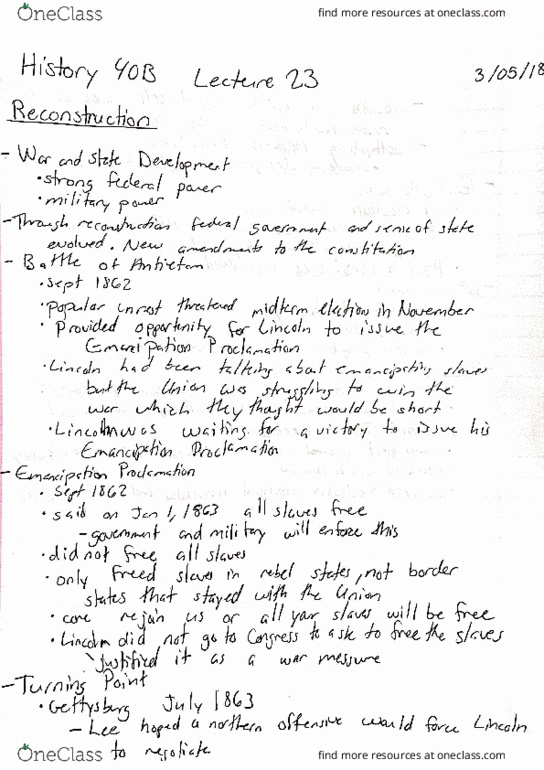 OneClass find more resources at oneclass.com
History 40B Lecture 23 3/05/18
Reconstruction
- War and State Development
• strong federal power
• military power
- Through reconstruction federal government and sense of state
evolved. New amendments to the constitution
- Battle of Antietam
• Sept 1862
• popular unrest threatened midterm election in November
• Provided opportunity for Lincoln to issue the
Emancipation Proclamation
• Lincoln had been talking about emancipating slaves
but the Union was struggling to win the
war which they thought would be short
• Lincoln was waiting for a victory to issue his
Emancipation Proclamation
- Emancipation Proclamation
• Sept 1862
• said on Jan 1, 1863 all slaves free
- government and military will enforce this
• did not free all slaves
• only freed slaves in rebel states, not border
states that stayed with the Union
• come rejoin us or all your slaves will be free
• Lincoln did not go to Congress to ask to free the slaves
justified it as a war messure
- Turning Point
• Gettysburg July 1863
- Lee hoped a northern offensive would force Lincoln
to negotiate
OneClass find more resources at oneclass.com